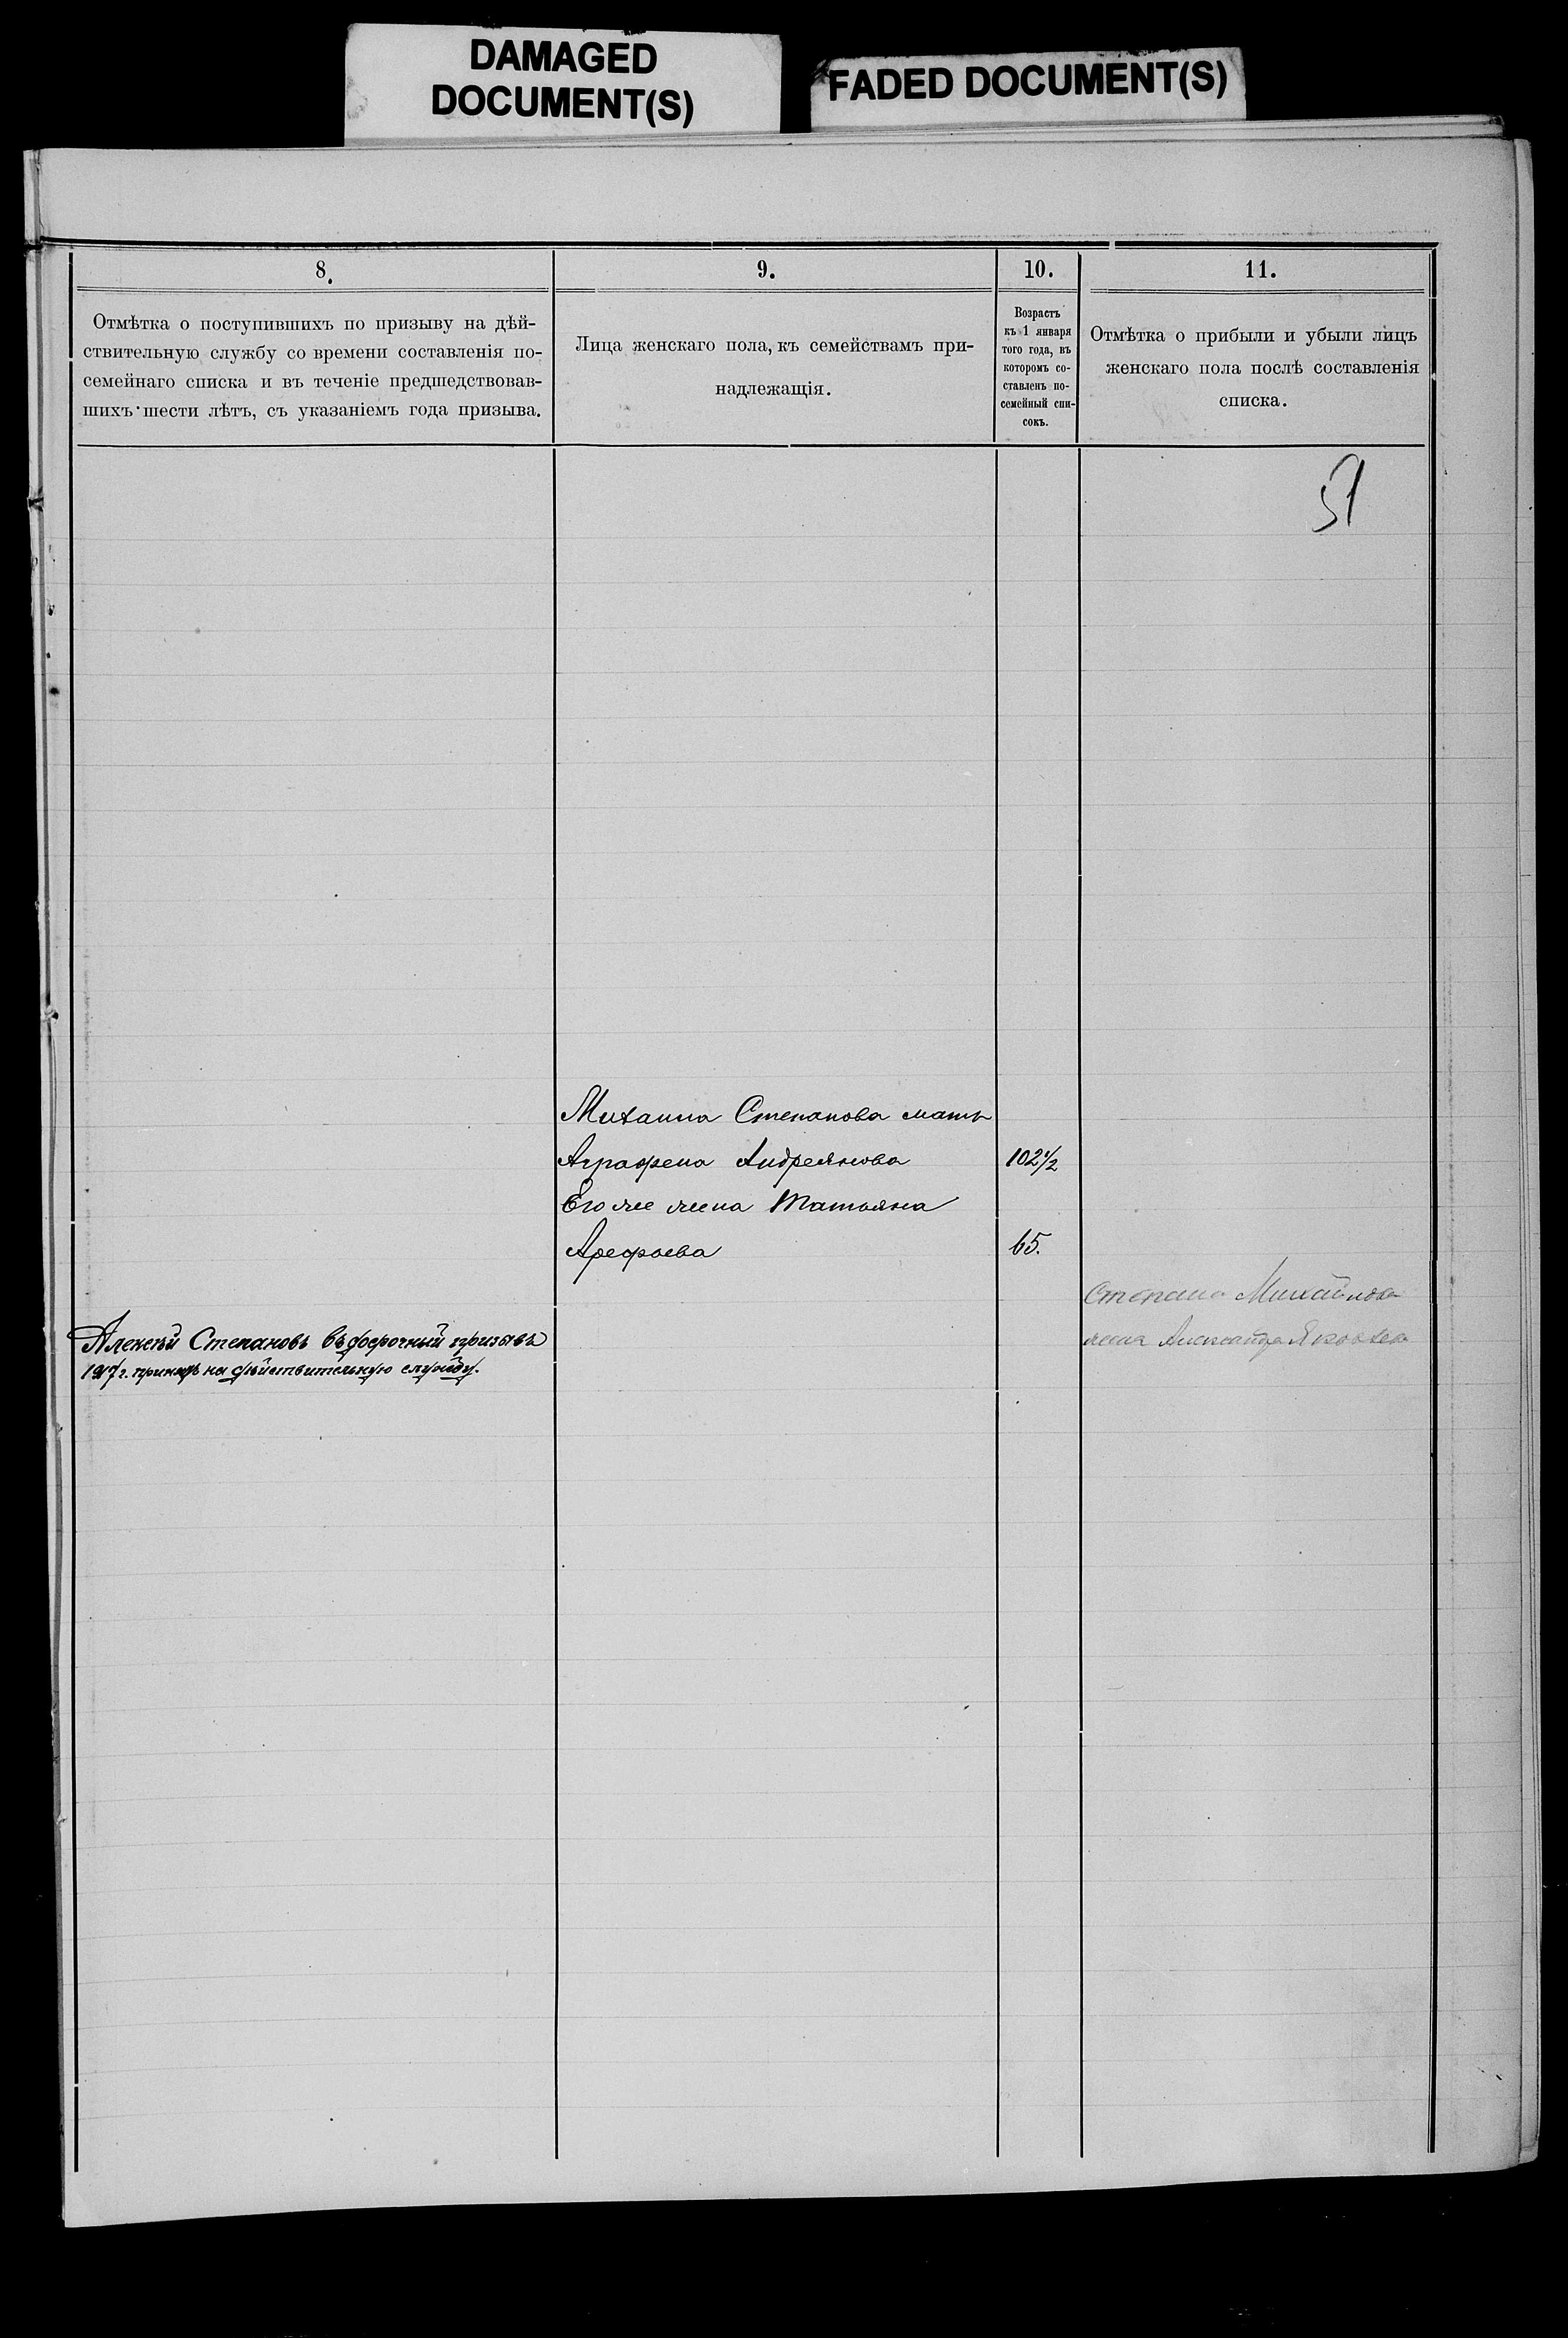 DAMAGED
DOCUMENT(S)
FADED DOCUMENT(S)
8.
Отмѣтка о поступившихъ по призыву на дѣй-
ствительную службу со времени составленія по-
семейнаго списка и въ теченіе предшедствовав-
шихъ шести лѣтъ, съ указаніемъ года призыва.
9.
Лица женскаго пола, къ семействамъ при-
надлежащія.
10.
Возрастъ
къ 1 января
того года, въ
которомъ со-
ставленъ по-
семейный спи-
сокъ.
11.
Отмѣтка о прибыли и убыли лицъ
женскаго пола послѣ составленія
списка.
51
Михаила Степанова мать
Аграфена Андреянова 102½
Его же жена Татьяна
Арефьева 65.
Степана Михайлова
жена Александра Яковлева
Алексѣй Степановъ въ досрочный призывъ
1917 г. принятъ на дѣйствительную службу.